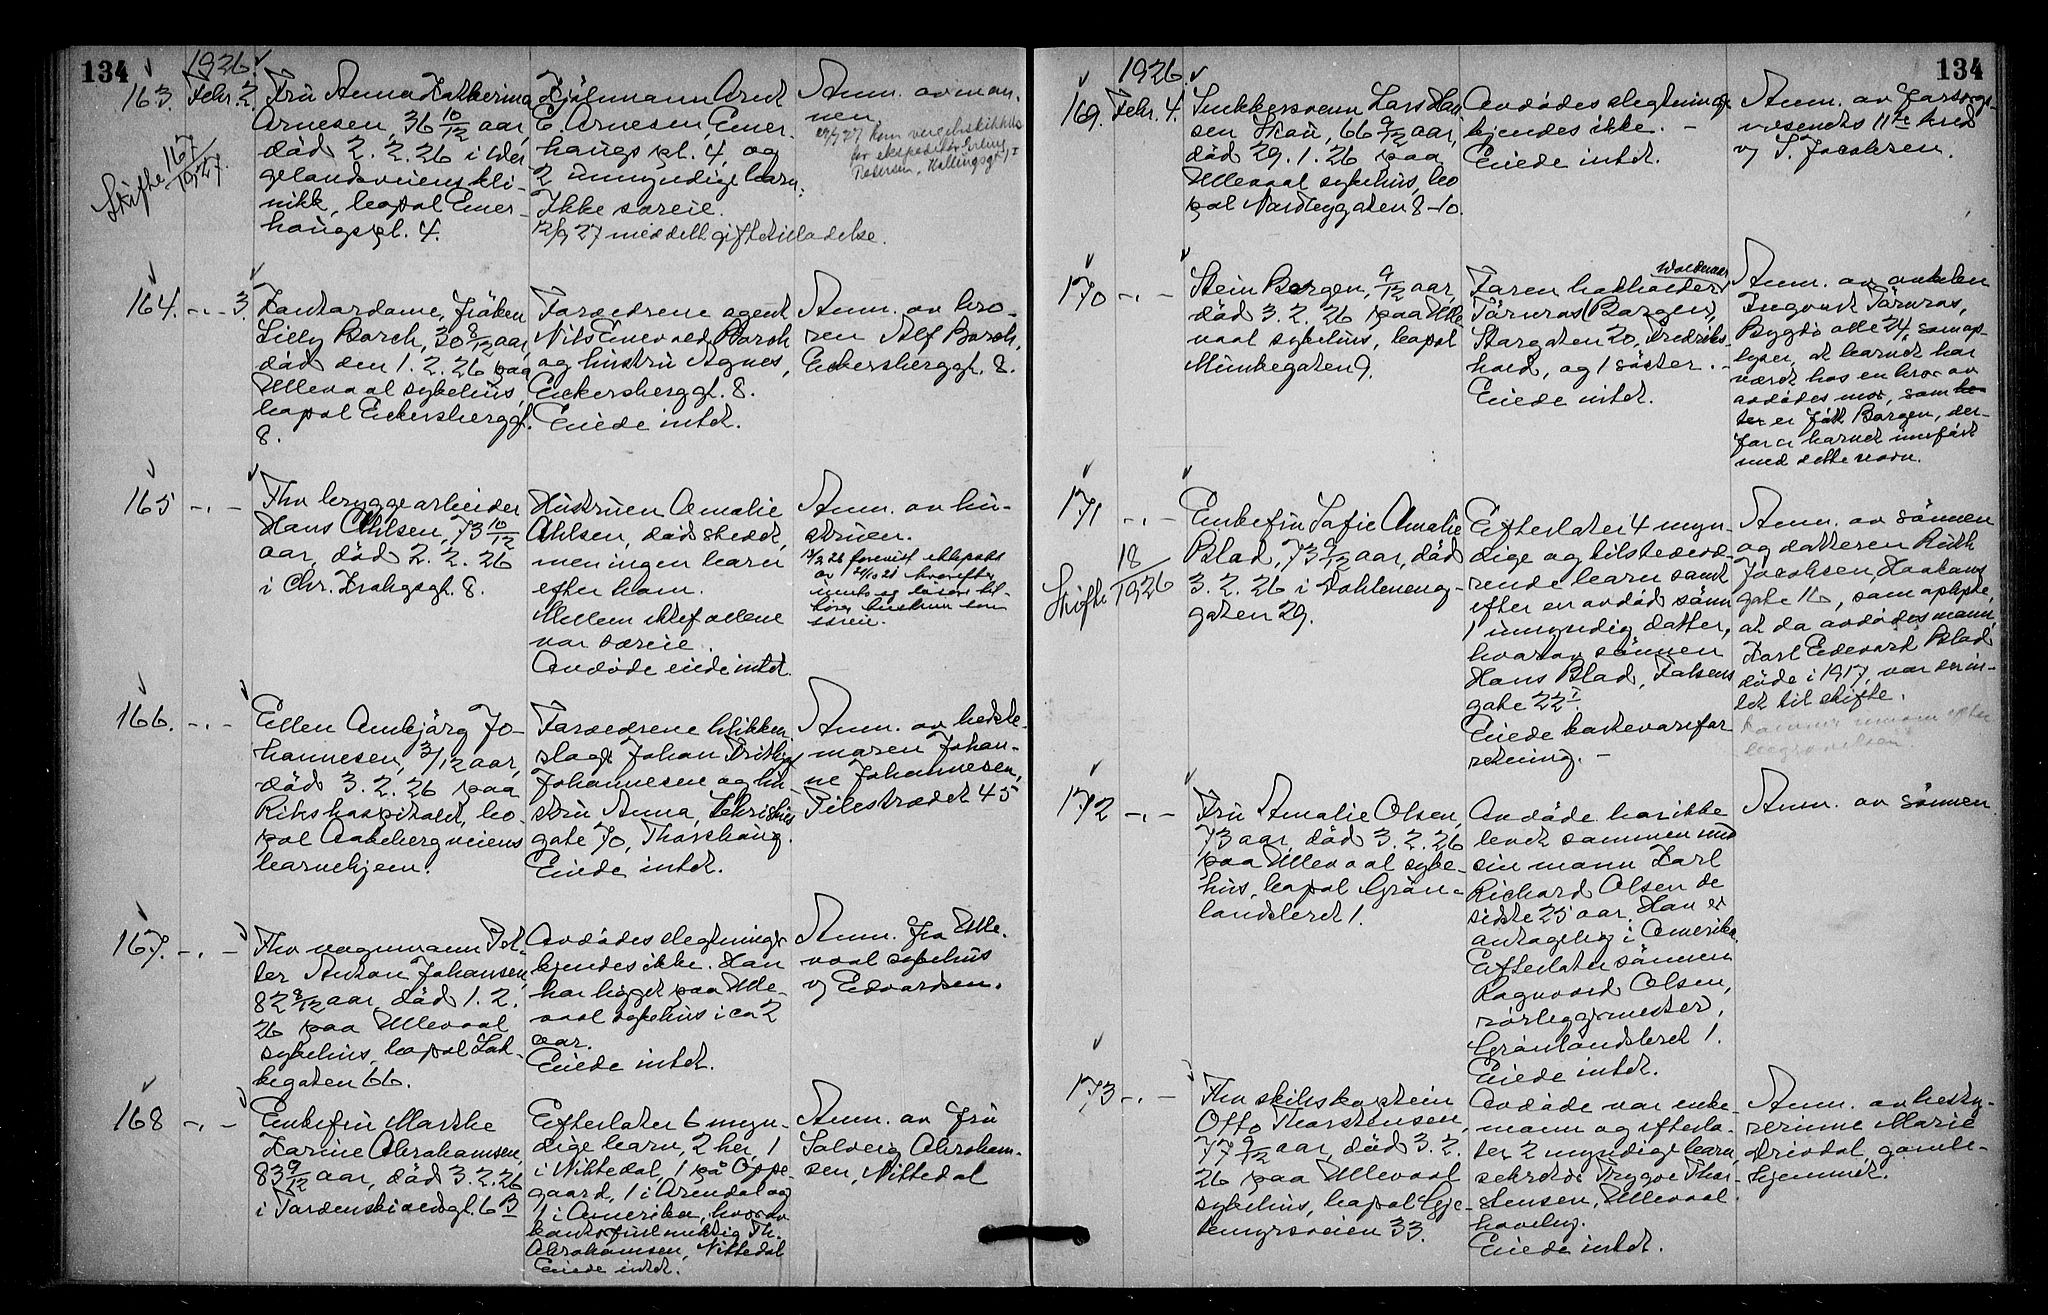 134
1926.
163. Febr. 2.
Skifte 167/1927.
Fru Anna Katherina
Arnesen, 36 10/12 aar,
död 2. 2. 26 i Wer
gelandsveiens kli-
nikk, bopæl Ener-
haugspl. 4.
Arnt
E. Arnesen, Ener-
haugspl. 4, og
2 umyndige barn.
Ikke særeie.
12/9 27 meddelt giftetilladelse.
Anm. av man-
nen.
164. -.- 3.
Kontordame, fröken
Lilly Borch, 30 8/12 aar,
död den 1. 2. 26 paa
Ullevaal sykehus,
bopæl Eckersberggt.
8.
Forældrene agent
Nils Enevold Borch
og hustru Agnes,
Eckersberggt. 8.
Eiede intet.
Anm. av bro-
ren Alf Borch,
Eckersberggt. 8.
165 -.-
Fhv. bryggearbeider
Hans Ohlsen, 73 10/12
aar, död 2. 2. 26
i Chr. Krohgsgt. 8.
Hustruen Amalie
Ohlsen, död stedet,
men ingen barn
efter ham.
Mellem ektefollene
var særeie.
Avdöde eiede intet.
Anm. av hu-
struen.
hustruen som
særeie.
166. -.-
Ellen Anbjörg Jo-
hannesen, 3/12 aar,
död 3. 2. 26 paa
Rikshospitalet, bo-
pæl Aakebergveiens
barnehjem.
Forældrene blikken-
slager Johan Fritljof
Johannesen og hu-
stru Anna,
gate 70, Thorshaug.
Eiede intet.
Anm. av beste-
moren Johan-
ne Johannesen,
Pilestrædet 45
167. -.-
Fhv. vognmann Pet-
ter Anton Johansen,
82 8/12 aar, död 1. 2.
26 paa Ullevaal
sykehus, bopæl Lak-
kegaten 66.
Avdödes slegtninger
kjendes ikke. Han
har ligget paa Ulle-
vaal sykehus i ca 2
aar.
Eiede intet.
Anm. fra Ulle-
vaal sykehus
v/ Edvardsen.
168 -.-
Enkefru Marthe
Karine Abrahamsen,
83 9/12 aar, död 3. 2. 26
i Tordenskioldsgt. 6 B
Efterlater 6 myn-
dige barn, 2 her, 1
i Nittedal, 1 på Oppe-
gaard, 1 i Arendal og
1 i Amerika, hvorav
kontorfuldmektig Th.
Abrahamsen, Nittedal
Eiede intet.
Anm. av fru
Solveig Abraham-
sen, Nittedal
134
1926.
169. Febr. 4.
Snekkersvenn Lars Han
sen Skau, 66 9/12 aar,
död 29. 1. 26 paa
Ullevaal sykehus, bo
pæl Nordbygaten 8-10.
Avdödes slegtninger
kjendes ikke. -
Eiede intet.
Anm. av Forsorgs-
vesenets 11te kreds
v/ S. Jacobsen.
170 -.-
Stein Borgen, 9/12 aar,
död 3. 2. 26 paa Ulle
vaal sykehus, bopæl
Munkegaten 9.
Woldemar
Faren
Tärnros (Borgen),
Storgaten 20, Fredriks-
hald, og 1 söster. -
Eiede intet.
Anm. av onkelen
Ingvart Tärnros,
Bygdö alle 24, som op-
lyser, at barnet har
været hos en bror av
avdödes mor, som he-
ter er født Borgen, der-
for er barnet innført
med dette navn.
171 -.-
Skifte 18/1926
Enkefru Sofie Amalie
Blad, 73 9/12 aar, död
3. 2. 26 i Dahleneng-
gaten 29.
Efterlater 4 myn-
dige og tilstedevæ-
rende barn samt
efter en avdöd sönn
1 umyndig datter,
hvorav sönnen
Hans Blad, Falsens
gate 22 I
Eiede kortevarefor
retning. -
Anm. av sönnen
og datteren Ruth
Jacobsen, Haakons
gate 16, som oplyste,
at da avdödes mann,
Karl Edevard Blad
döde i 1917, var der in-
tet til skifte.
172 -.-
Fru Amalie Olsen,
73 aar, död 3. 2. 26
paa Ullevaal syke-
hus, bopæl Grön-
landsleret 1.
Avdöde har ikke
levet sammen med
sin mann Karl
Richard Olsen de
sidste 25 aar. Han er
antagelig i Amerika.
Efterlater sönnen
Ragnvard Olsen,
rörleggermester,
Grönlandsleret 1.
Eiede intet.
Anm. av sönnen
173 -.-
Fhv. skibskaptein
Otto Thorstensen,
77 9/12 aar, död 3. 2.
26 paa Ullevaal
sykehus, bopæl Gje-
temyrsveien 33.
Avdöde var enke-
mann og efterla-
ter 2 myndige barn,
sekretær Trygve Thor-
stensen, Ullevaal
haveby.
Eiede intet.
Anm. av besty-
rerinne Marie
Drivdal, gamle-
hjemmet.